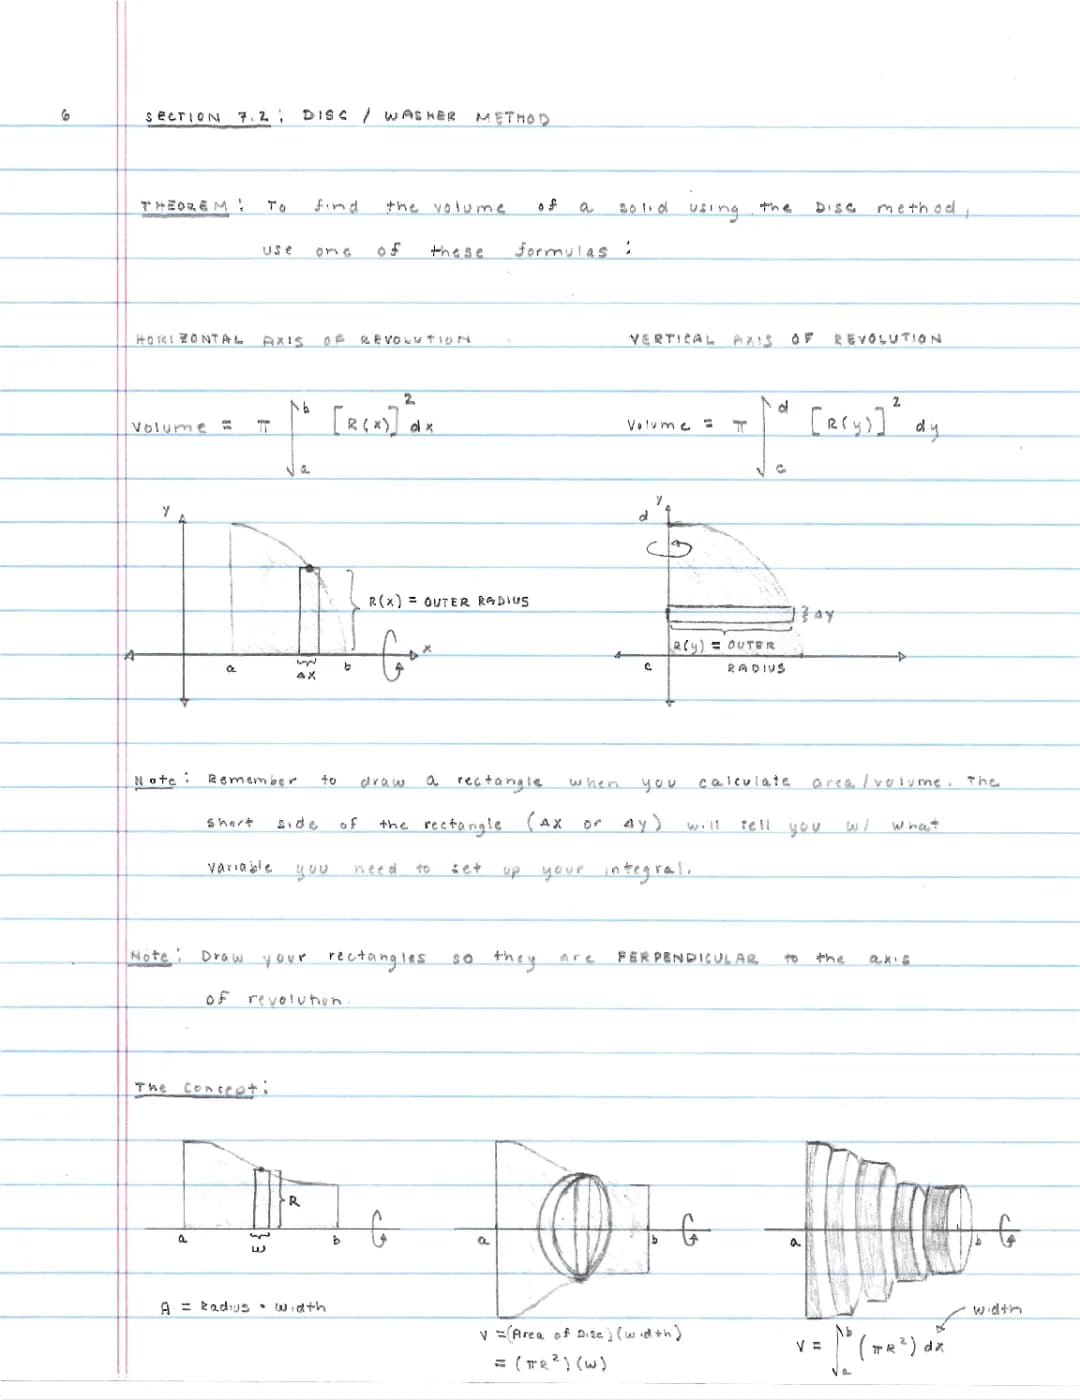 6
SECTION 7.2: DISC / WASHER METHOD
THEOREM: To find the volume of a solid using the DISC method,
use one of these formulas:
HORIZONTAL AXIS OF REVOLUTION
VERTICAL AXIS OF REVOLUTION
Volume = π ∫_a^b [R(x)]² dx
Volume = π ∫_c^d [R(y)]² dy
y
R(x) = OUTER RADIUS
x
a
Δx
b
y
d
Δy
R(y) = OUTER
RADIUS
c
Note: Remember to draw a rectangle when you calculate area/volume. The
short side of the rectangle (Δx or Δy) will tell you w/ what
variable you need to set up your integral.
Note: Draw your rectangles so they are PERPENDICULAR to the axis
of revolution.
The Concept:
R
a
w
b
A = Radius • width
a
b
V = (Area of Disc)(width)
= (πR²)(w)
a
b
width
V = ∫_a^b (πR²) dx